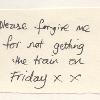 Please forgive me
for not getting
the train on
Friday x x